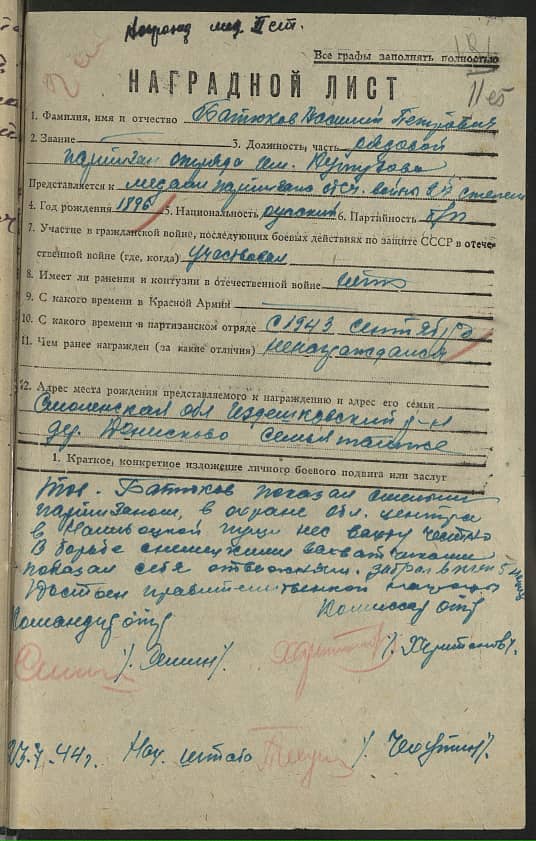 Награжд мед. II ст.
Все графы заполнять полностью
НАГРАДНОЙ ЛИСТ
1. Фамилия, имя и отчество Батюков Василий Петрович
2. Звание 3. Должность, часть рядовой
партизан отряда им. Кутузова
Представляется к медали партизана отеч. войны 2й степени
4. Год рождения 1896 5. Национальность русский 6. Партийность б/п
7. Участие в гражданской войне, последующих боевых действиях по защите СССР в отече-
ственной войне (где, когда) участвовал
8. Имеет ли ранения и контузии в отечественной войне нет
9. С какого времени в Красной Армии
10. С какого времени в партизанском отряде с 1943 сентября
11. Чем ранее награжден (за какие отличия) ненаграждался
12. Адрес места рождения представляемого к награждению и адрес его семьи
Смоленская обл Издешковский р-н
дер. Денисково семья также
1. Краткое, конкретное изложение личного боевого подвига или заслуг
Тов. Батюков показал смелым
партизаном, в охране обл. центра
в Налибоцкой пущи нес вахту честно
В борьбе снемецкими захватчиками
показал себя отважным. забрал в плен 5 немцев
Достоен правительственной награды
Командир отр Комиссар отр
/. /. Харитонов /.
44 г. Нач. штаба /. /.